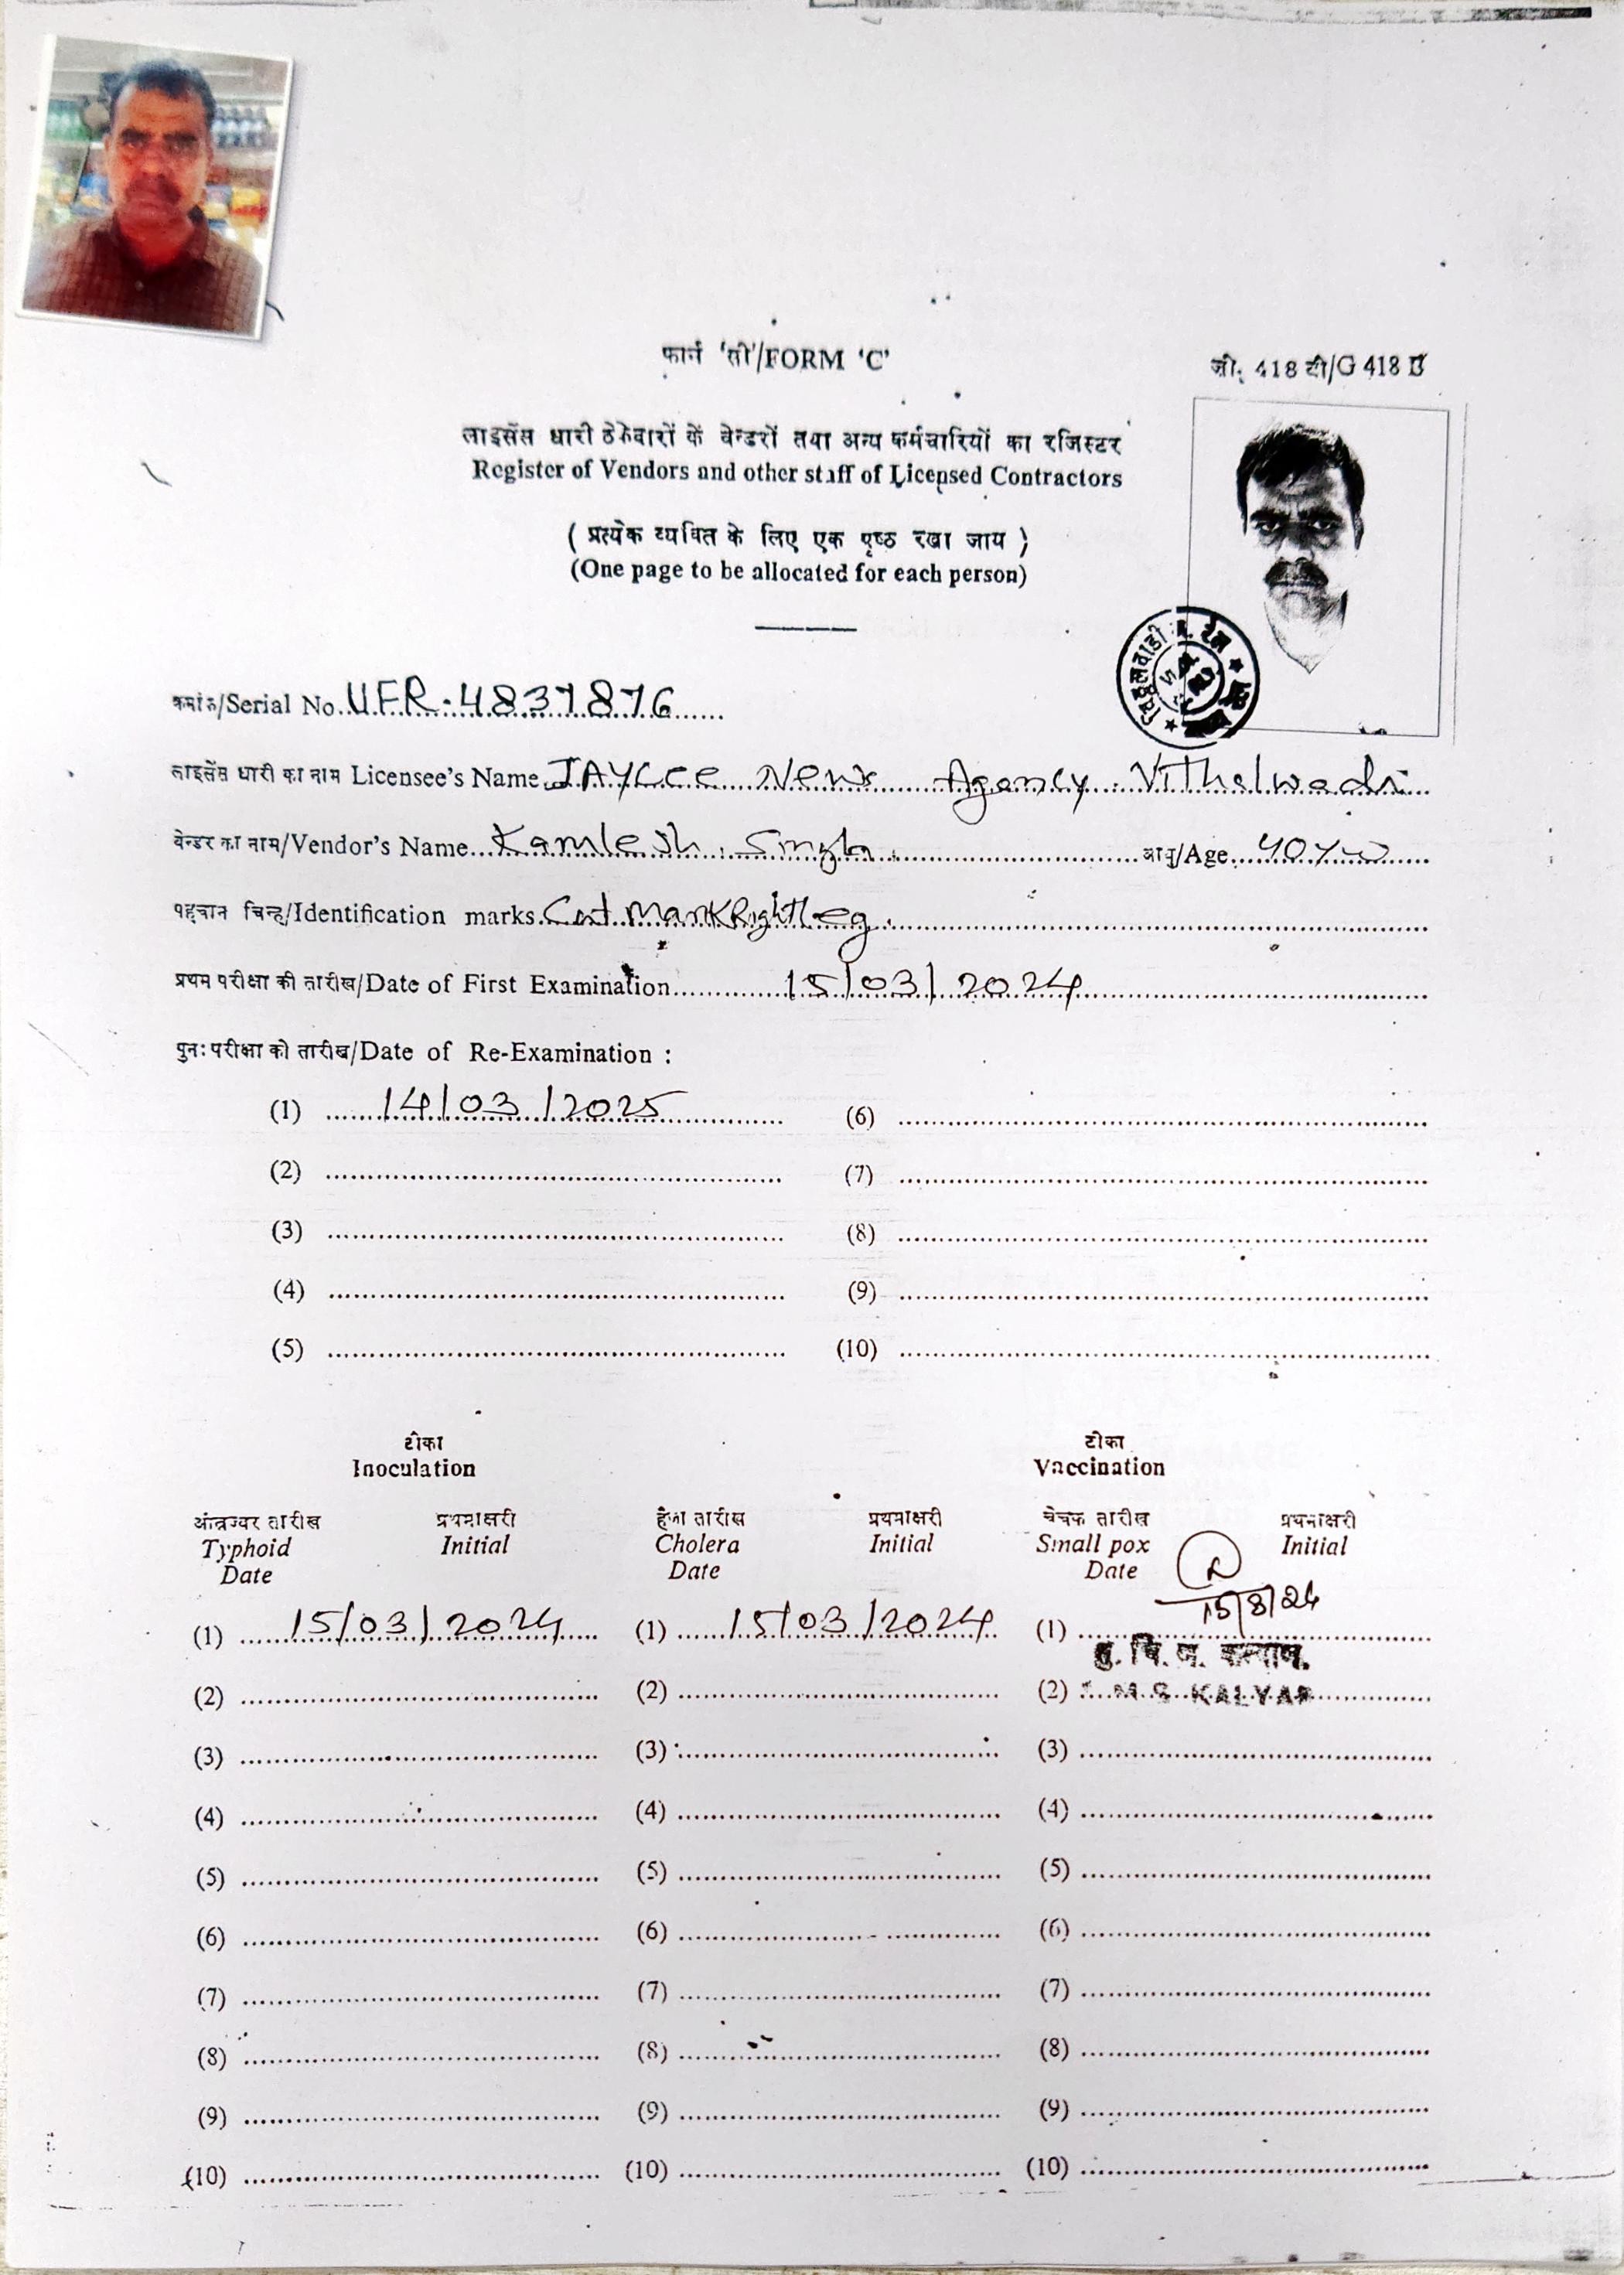 फार्म 'सी'/FORM 'C'
जी. 418 टी/G 418
लाइसेंस धारी ठेकेदारों के वेन्डरों तथा अन्य कर्मचारियों का रजिस्टर
Register of Vendors and other staff of Licensed Contractors
( प्रत्येक व्यक्ति के लिए एक पृष्ठ रखा जाय )
(One page to be allocated for each person)
क्रमांक/Serial No. UFR-4837876
लाइसेंस धारी का नाम Licensee's Name JAYCee News Agency Vithalwadi
वेन्डर का नाम/Vendor's Name Kamlesh Singh आयु/Age 40 yrs
पहचान चिन्ह/Identification marks Cut Mark Right Leg
प्रथम परीक्षा की तारीख/Date of First Examination 15/03/2024
पुनः परीक्षा की तारीख/Date of Re-Examination :
(1) 14/03/2025 (6)
(2) (7)
(3) (8)
(4) (9)
(5) (10)
टीका टीका
Inoculation Vaccination
आंत्रज्वर तारीख प्रथमाक्षरी हैजा तारीख प्रथमाक्षरी चेचक तारीख प्रथमाक्षरी
Typhoid Initial Cholera Initial Small pox Initial
Date Date Date
15/3/24
(1) 15/03/2024 (1) 15/03/2024 (1)
कल्याण.
(2) (2) (2) M S KALYAN
(3) (3) (3)
(4) (4) (4)
(5) (5) (5)
(6) (6) (6)
(7) (7) (7)
(8) (8) (8)
(9) (9) (9)
(10) (10) (10)